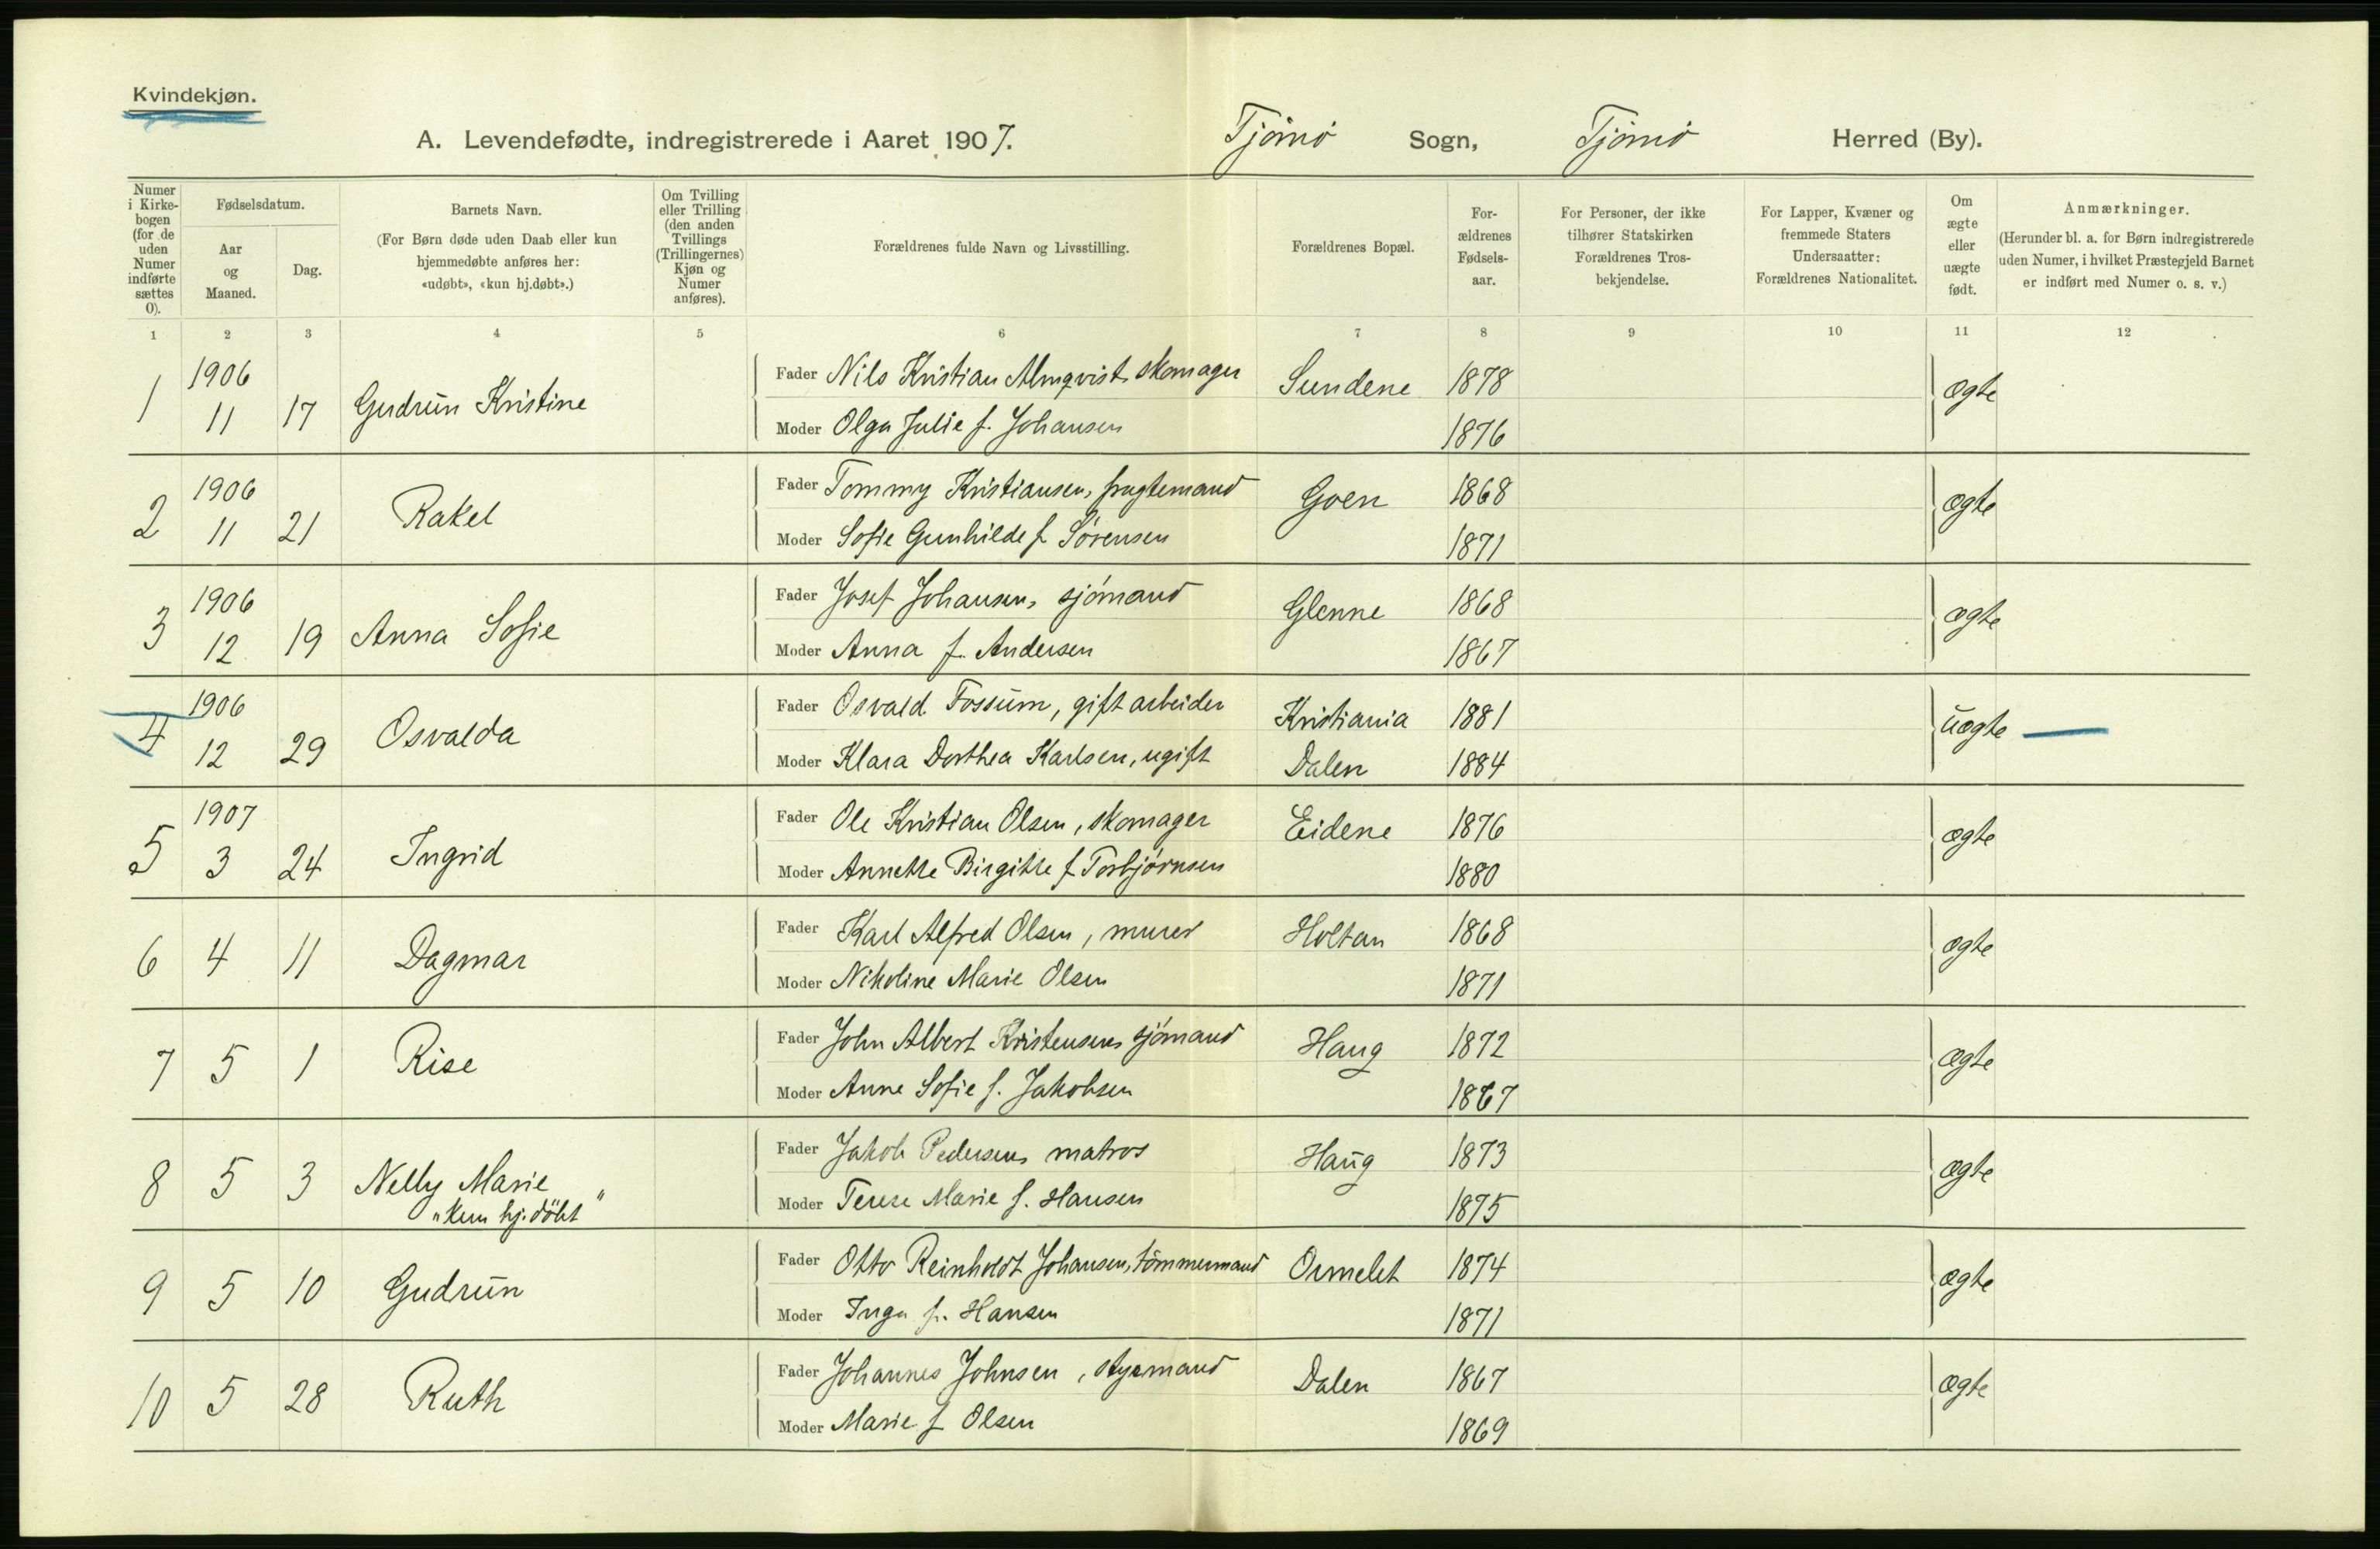 Kvindekjøn.
A. Levendefødte, indregistrerede i Aaret 1907. Tjømø Sogn, Tjømø Herred (By).
Numer i Kirke-bogen (for de uden Numer indførte sættes 0).
Fødselsdatum.
Aar og Maaned.
Dag.
Barnets Navn.
(For Børn døde uden Daab eller kun
hjemmedøbte anføres her:
«udøbt», «kun hj.døbt».)
Om Tvilling
eller Trilling
(den anden
Tvillings
(Trillingernes)
Kjøn og
Numer
anføres).
Forældrenes fulde Navn og Livsstilling.
Forældrenes Bopæl.
For-
ældrenes
Fødsels-
aar.
For Personer, der ikke
tilhører Statskirken
Forældrenes Tros-
bekjendelse.
For Lapper, Kvæner og
fremmede Staters
Undersaatter:
Forældrenes Nationalitet.
Om
ægte
eller
uægte
født.
Anmærkninger.
(Herunder bl. a. for Børn indregistrerede
uden Numer, i hvilket Præstegjeld Barnet
er indført med Numer o. s. v.)
1 2 3 4 5 6 7 8 9 10 11 12
1 1906 11 17 Gudrun Kristine Fader Nils Kristian Almqvist, skomager Sundene 1878 ægte
Moder Olga Julie f. Johansen 1876
2 1906 11 21 Rakel Fader Tommy Kristiansen, fragtemand Goen 1868 ægte
Moder Sofie Gunhilde f Sørensen 1871
3 1906 12 19 Anna Sofie Fader Josef Johansen, sjömand Glenne 1868 ægte
Moder Anna f. Andersen 1867
4 1906 12 29 Osvalda Fader Osvald Fossum, gift arbeider Kristiania 1881 uægte
Moder Klara Dorthea Karlsen, ugift Dalen 1884
5 1907 3 24 Ingrid Fader Ole Kristian Olsen, skomager Eidene 1876 ægte
Moder Annette Birgitte f Torbjørnsen 1880
6 4 11 Dagmar Fader Karl Alfred Olsen, murer Holtan 1868 ægte
Moder Nikoline Marie Olsen 1871
7 5 1 Rise Fader John Albert Kristensen, sjömand Haug 1872 ægte
Moder Anne Sofie f. Jakobsen 1867
8 5 3 Nelly Marie Fader Jakob Pedersen, matros Haug 1873 ægte
"kun hj. döbt" Moder Terese Marie f. Hansen 1875
9 5 10 Gudrun Fader Otto Reinholdt Johansen, tömmermand Ormelet 1874 ægte
Moder Inga f. Hansen 1871
10 5 28 Ruth Fader Johannes Johnsen, styrmand Dalen 1867 ægte
Moder Marie f Olsen 1869